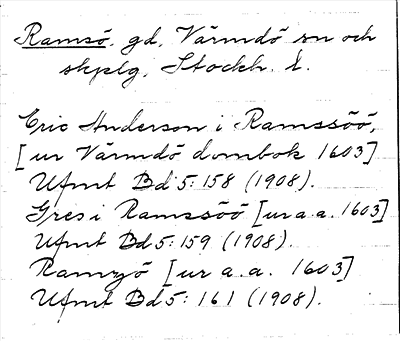 Ramsö, gd, Värmdö sn och
skplg, Stockh. l.
Eric Anderson i Ramssöö,
[ur Värmdö dombok 1603]
Ufmt Bd 5:158 (1908).
Gres i Ramssöö [ur a.a. 1603]
Ufmt Bd 5:159 (1908).
Ramzö [ur a.a. 1603]
Ufmt Bd 5:161 (1908).